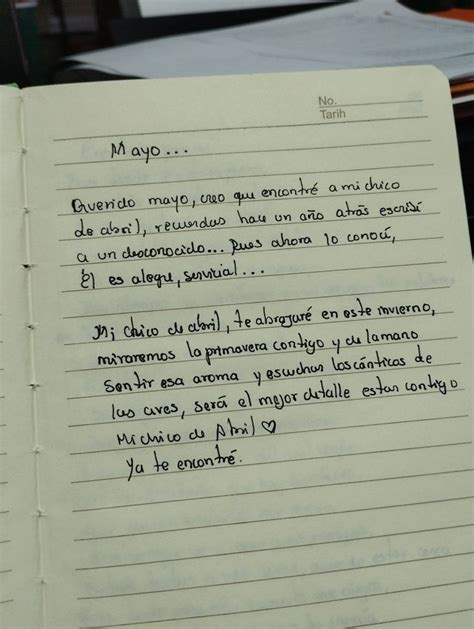 No.
Tarih
Mayo...
Querido mayo, creo que encontré a mi chico
de abril, recuerdas hace un año atrás escribí
a un desconocido... Pues ahora lo conocí,
Él es alegre, servicial...
Mi chico de abril, te abrazaré en este invierno,
miraremos la primavera contigo y de la mano
Sentir esa aroma y escuchar los cánticos de
las aves, será el mejor detalle estar contigo
Mi chico de Abril ♡
Ya te encontré.